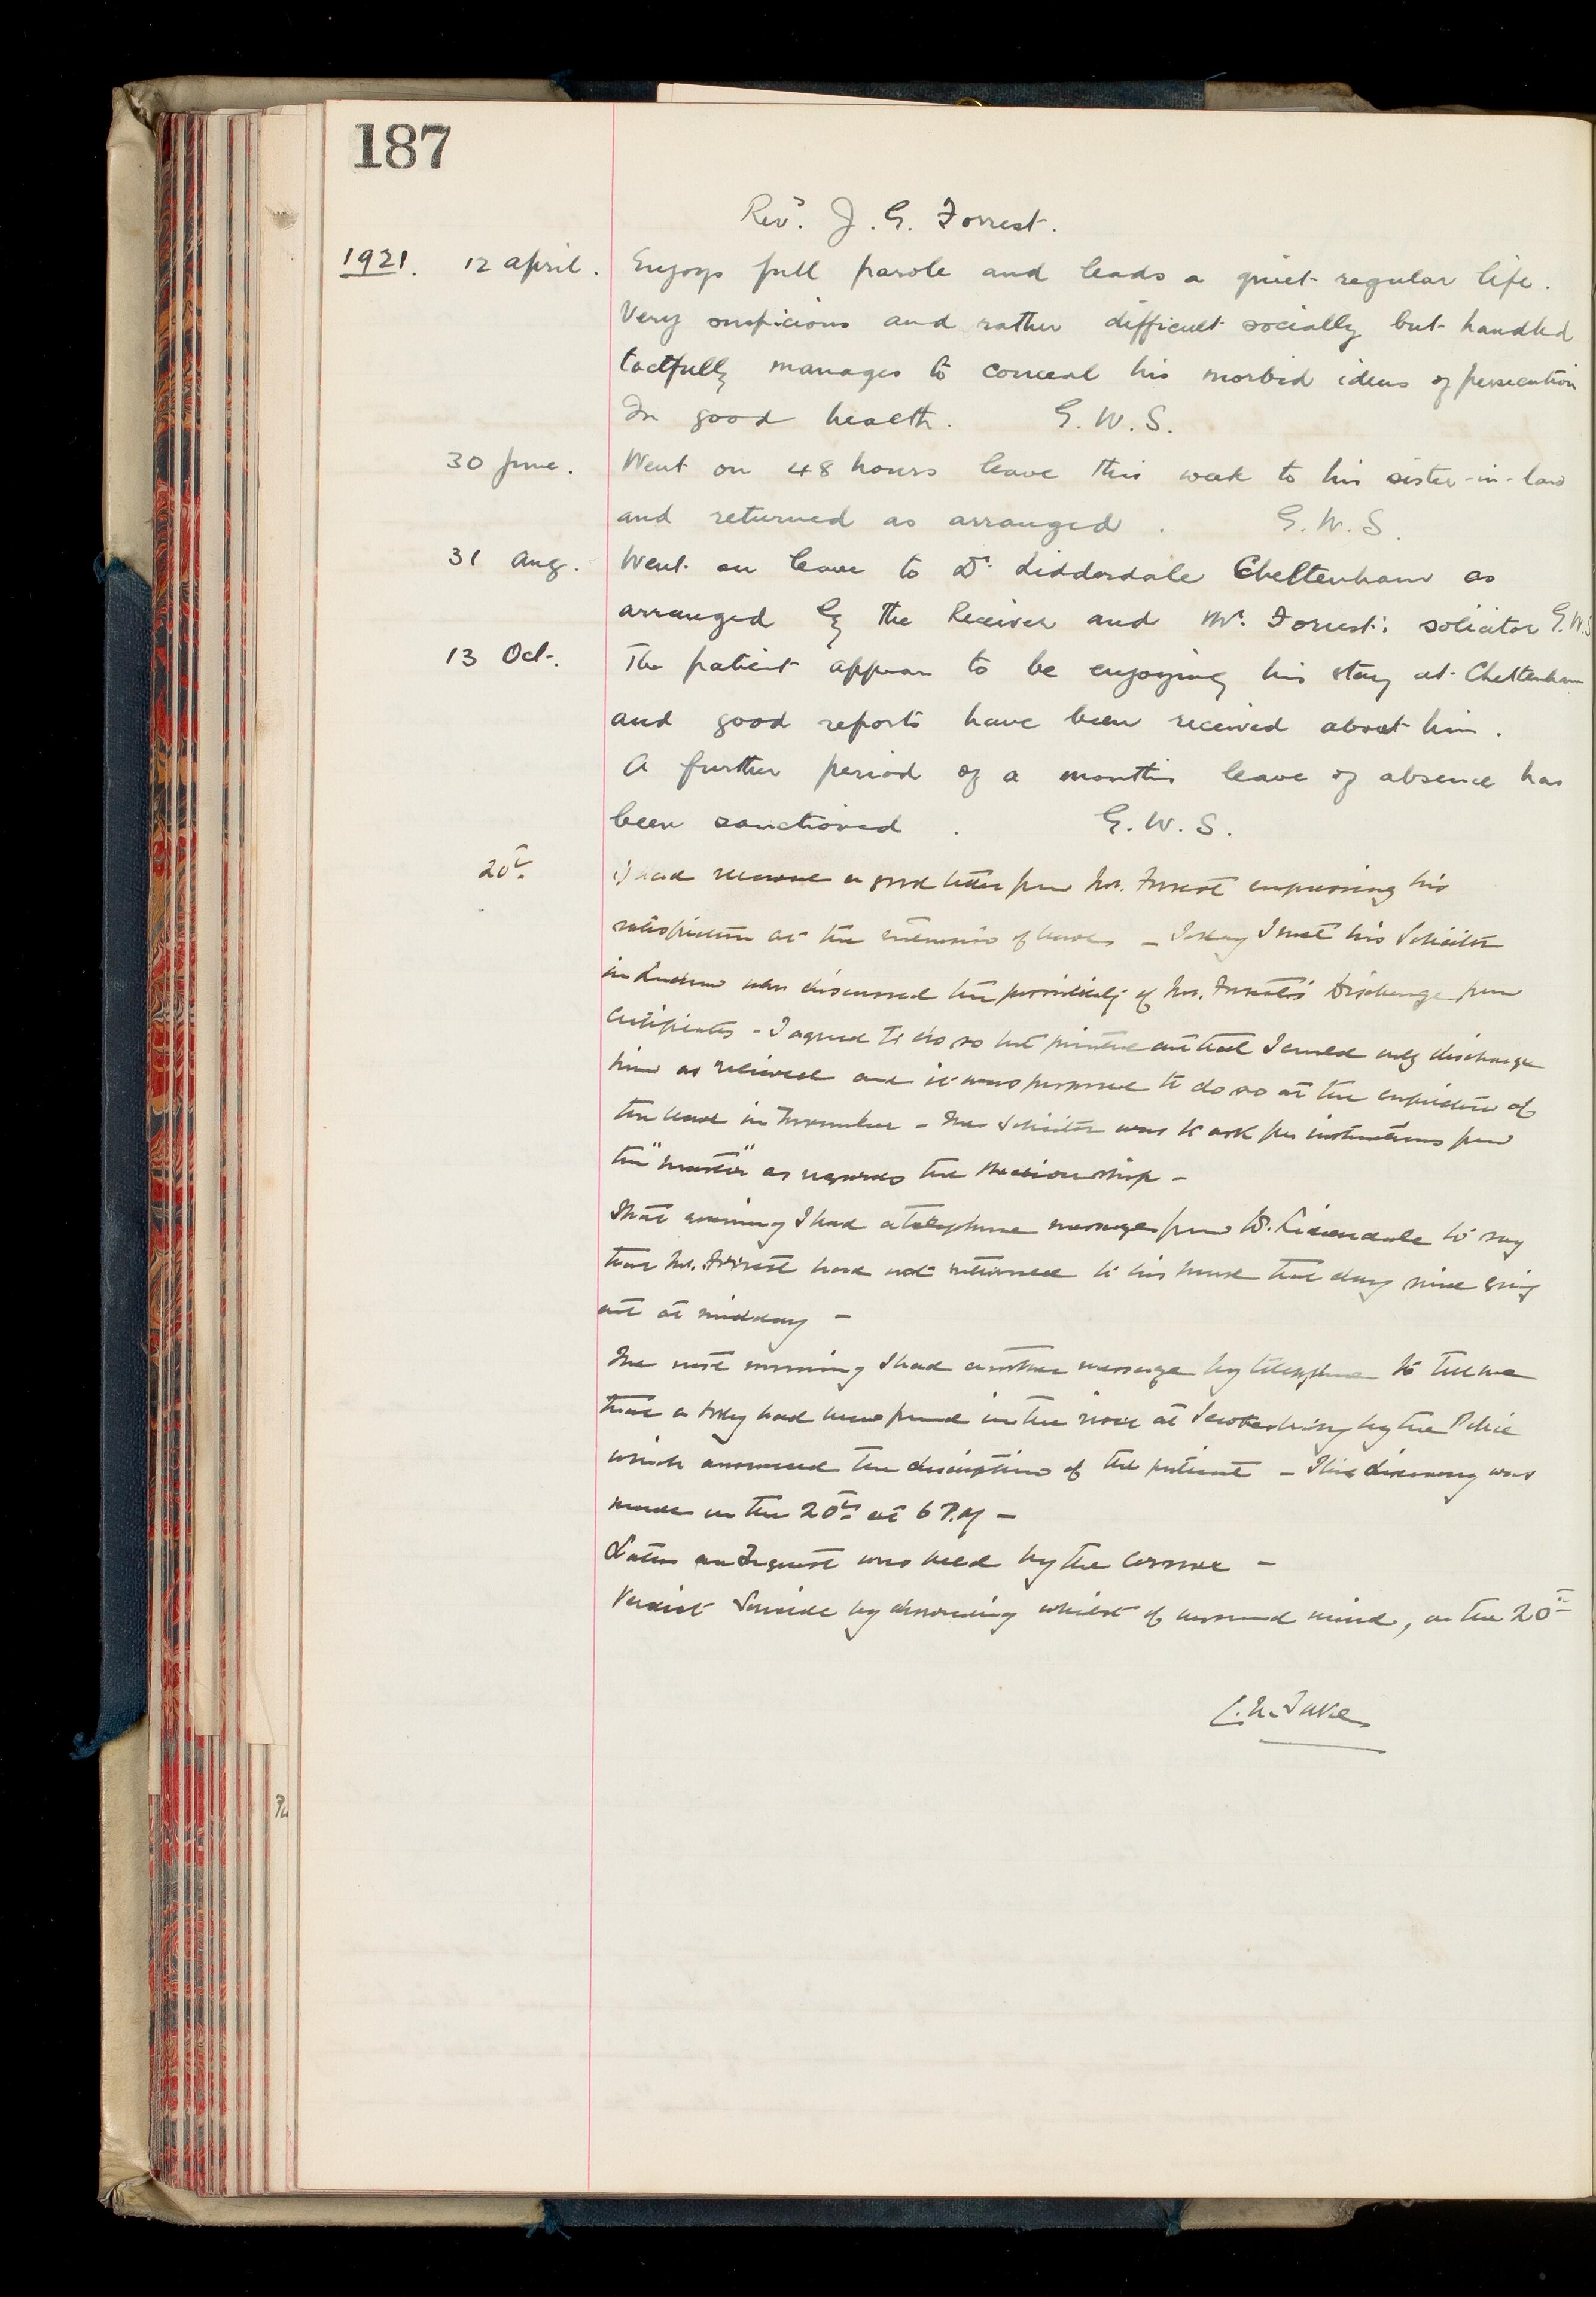 187
Revd. J. G. Forrest.
1921. 12 April. Enjoys full parole and leads a quiet regular life.
Very suspicious and rather difficult socially but handled
tactfully manages to conceal his morbid ideas of persecution
In good health. G. W. S.
30 June. Went on 48 hours leave this week to his sister-in-law
and returned as arranged. G. W. S.
31 Aug. Went on leave to Dr. Lidderdale Cheltenham as
arranged by the Receiver and Mr. Forrest's solicitor G.W.S
13 Oct. The patient appears to be enjoying his stay at Cheltenham
and good reports have been received about him.
A further period of a months leave of absence has
been sanctioned. G. W. S.
20th. I had received a good letter from Mr. Forrest expressing his
satisfaction at the extension of leave – Today I met his Solicitor
in London who discussed the possibility of Mr. Forrest's Discharge from
Certificates – I agreed to do so but pointed out that I could only discharge
him as relieved and it was proposed to do so at the expiration of
the leave in November – The Solicitor was to ask for instructions from
the "Master" as regards the Receivership –
That evening I had a telephone message from Dr. Lidderdale to say
that Mr. Forrest had not returned to his house that day since going
out at midday –
The next morning I had another message by telephone to tell me
that a body had been found in the river at Tewkesbury by the Police
which answered the description of the patient – This discovery was
made on the 20th at 6 P.M –
Later an Inquest was held by the Coroner –
Verdict Suicide by drowning whilst of unsound mind, on the 20th